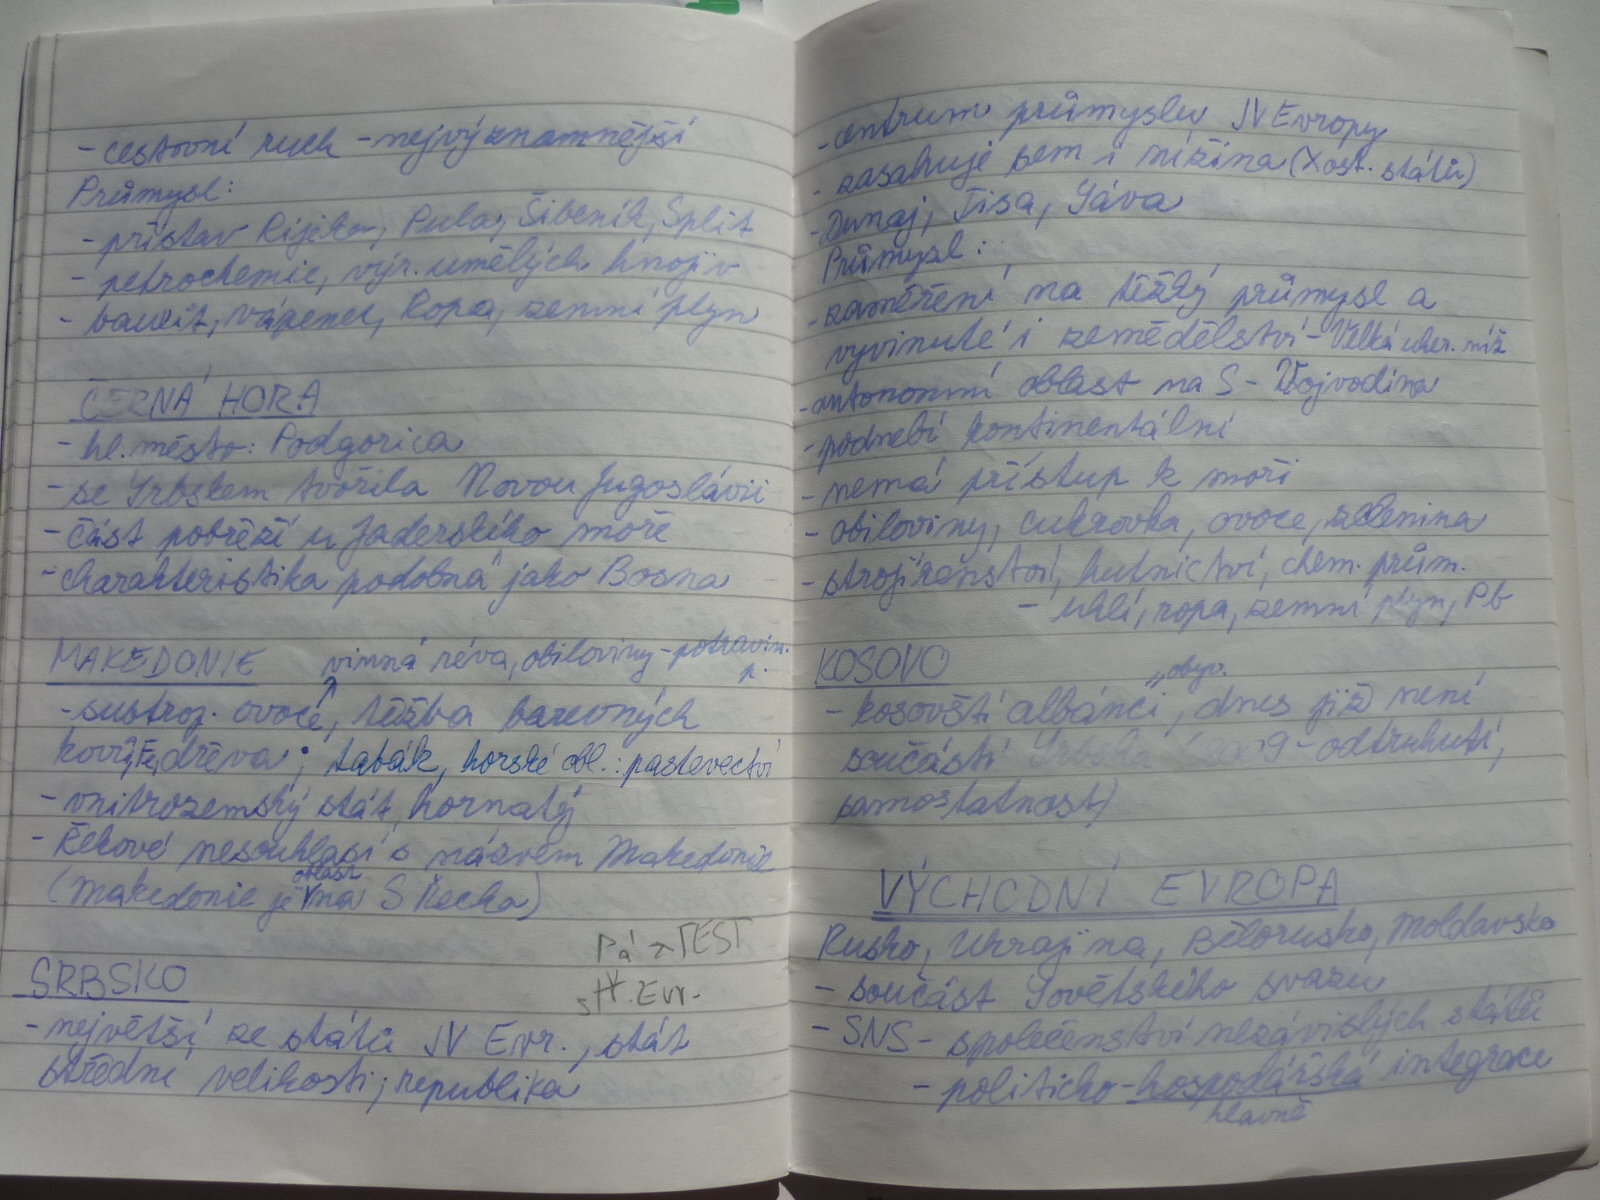 - cestovní ruch - nejvýznamnější
Průmysl:
- přístav Rijeka, Pula, Šibenik, Split
- petrochemie, výr. umělých hnojiv
- bauxit, vápenec, Ropa, zemní plyn
ČERNÁ HORA
- hl. město: Podgorica
- se Srbskem tvořila Novou Jugoslávii
- část pobřeží u Jaderského moře
- charakteristika podobná jako Bosna
MAKEDONIE vinná réva, obiloviny - potravin. p.
- subtrop. ovoce, těžba barevných
kovů, Fe, dřeva; tabák, horské obl.: pastevectví
- vnitrozemský stát, hornatý
- Řekové nesouhlasí s názvem Makedonie
(Makedonie je oblast na S Řecka)
Pá z TEST
stř. Evr.
SRBSKO
- největší ze států JV Evr., stát
střední velikosti; republika
- centrum průmyslu JV Evropy
- zasahuje sem i nížina (X ost. států)
- Dunaj, Tisa, Sáva
Průmysl:
- zaměření na těžký průmysl a
vyvinuté i zemědělství - Velká uher. níž
- autonomní oblast na S - Vojvodina
- podnebí kontinentální
- nemá přístup k moři
- obiloviny, cukrovka, ovoce, zelenina
- strojírenství, hutnictví, chem. prům.
- uhlí, ropa, zemní plyn, Pb
KOSOVO
- kosovští albánci, „obyv. dnes již není
součástí Srbska - odtrhutí,
samostatnost)
VÝCHODNÍ EVROPA
Rusko, Ukrajina, Bělorusko, Moldavsko
- součást Sovětského svazu
- SNS - společenství nezávislých států
- politicko-hospodářská integrace
hlavně